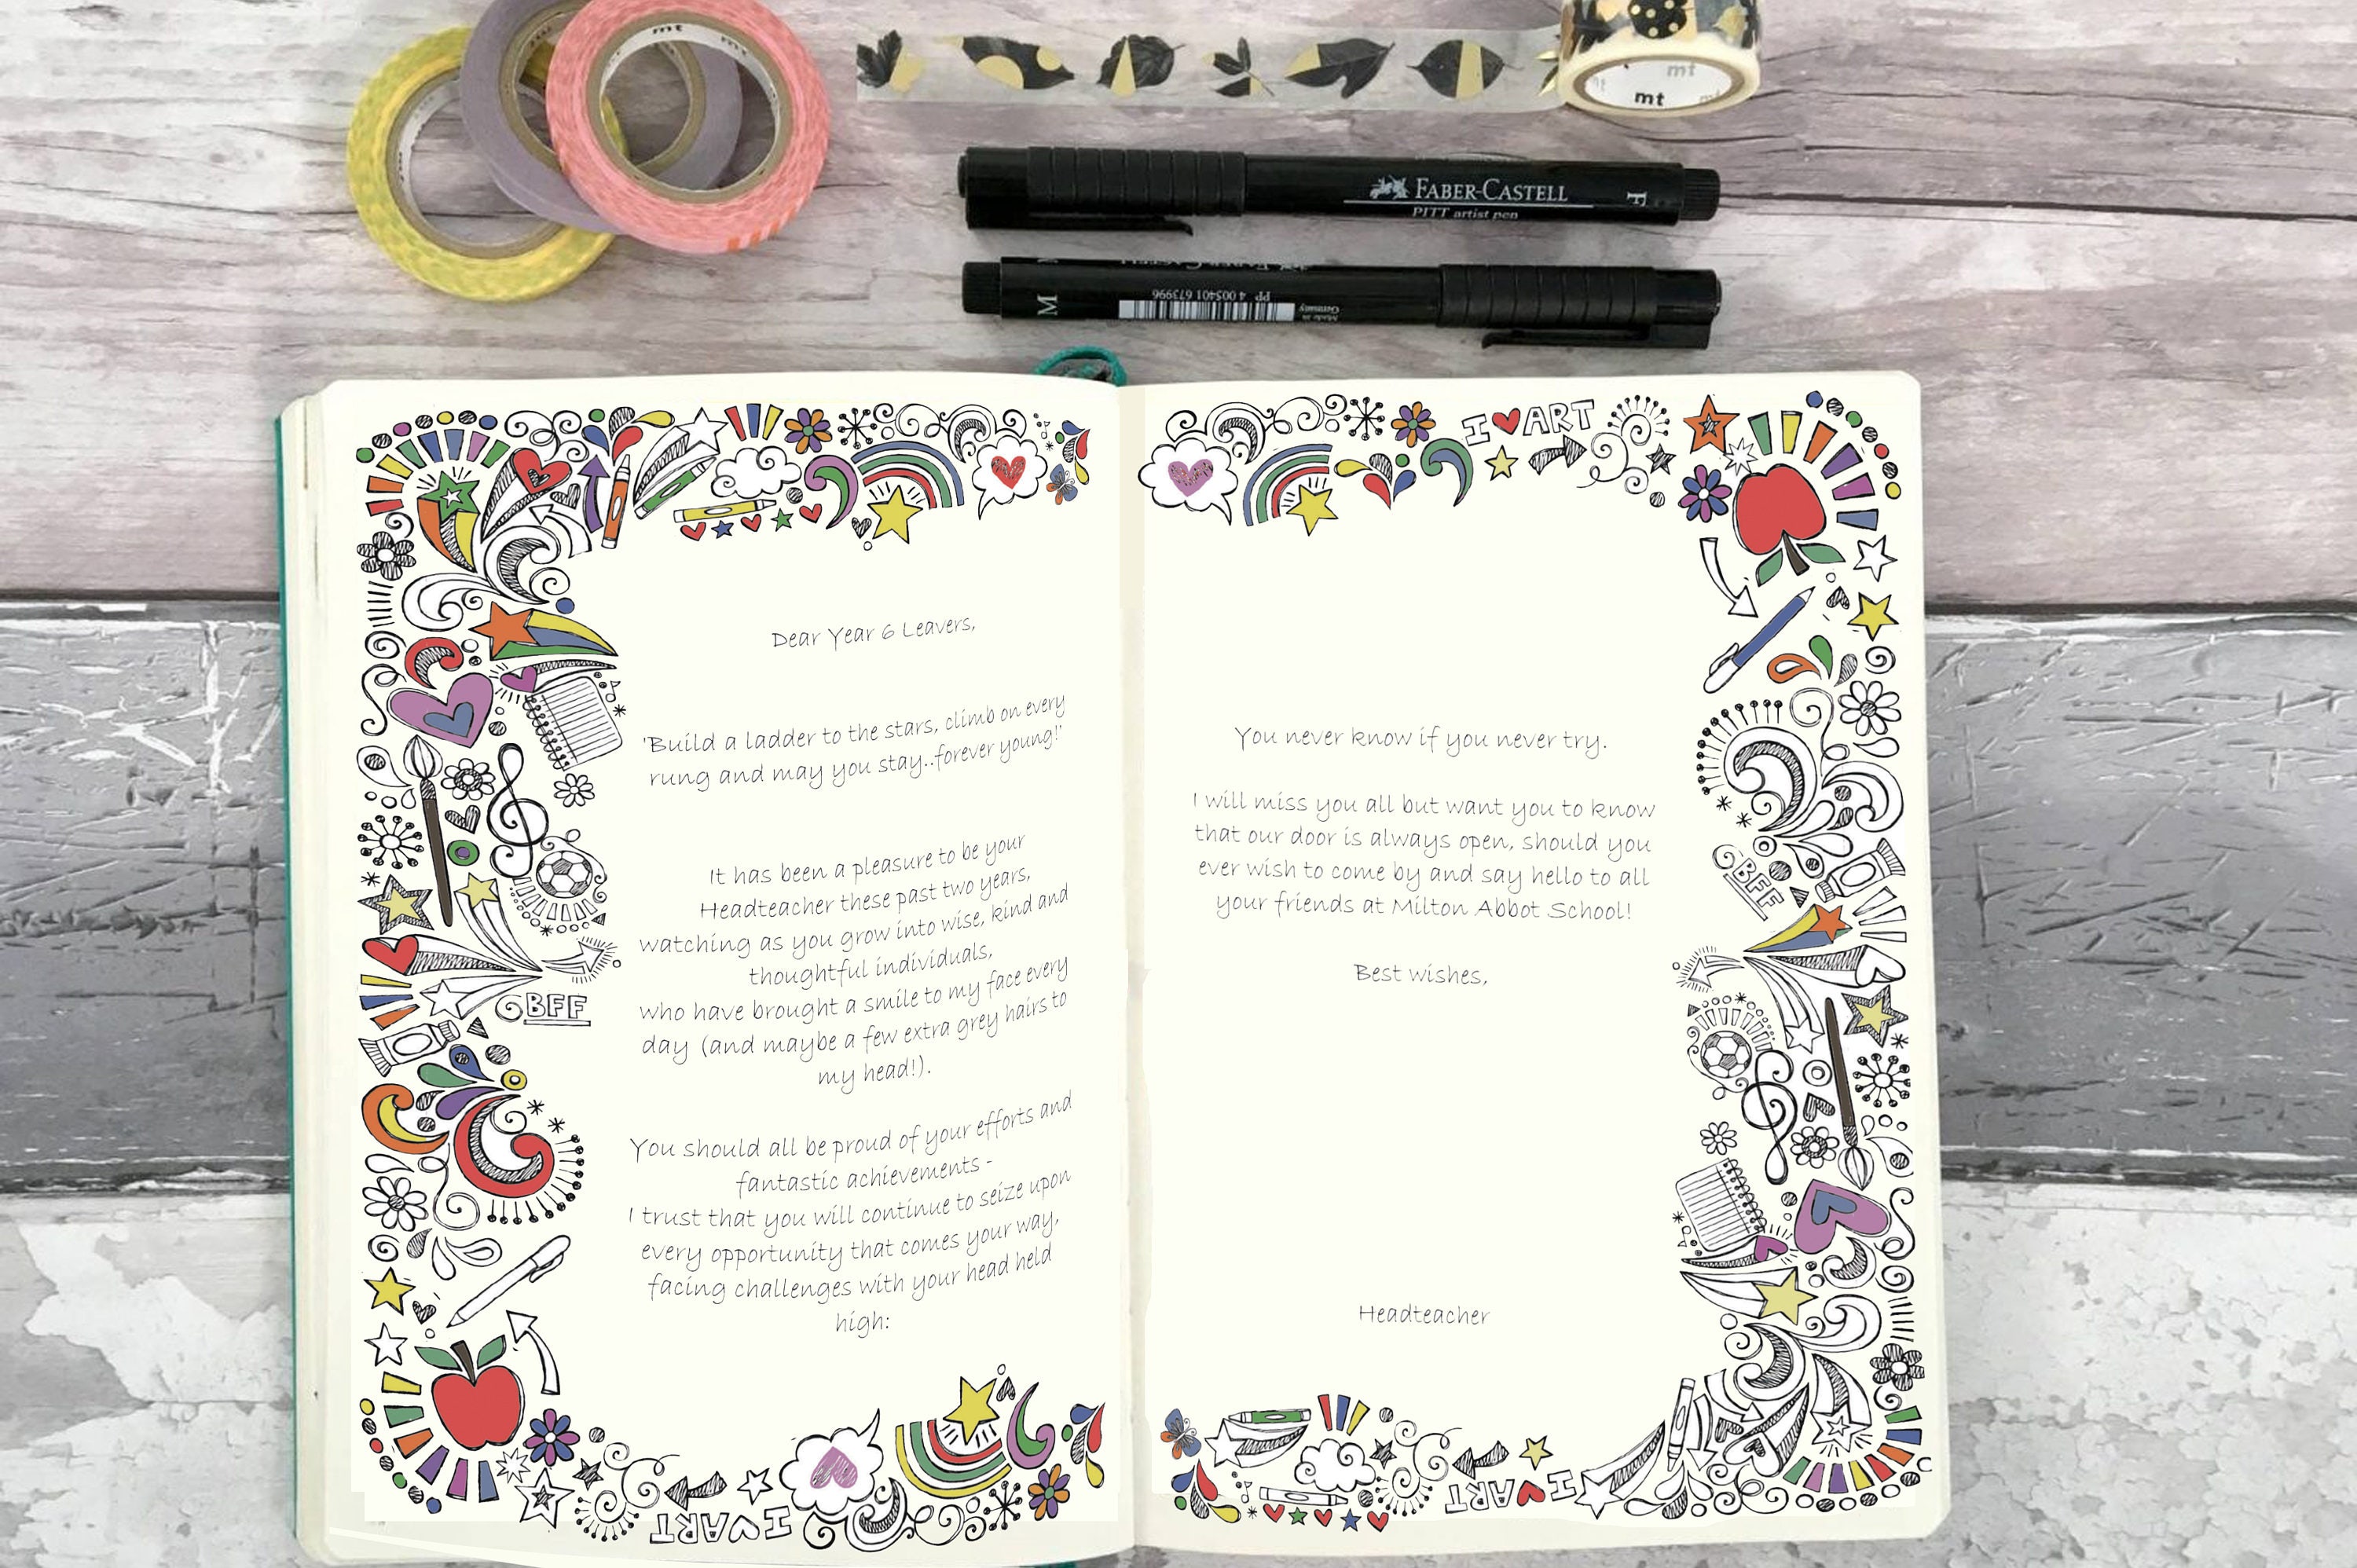 mt mt
mt
mt
FABER-CASTELL
PITT artist pen
F
M
PP 4 005401 673996
Made in
Germany
I ART
Dear Year 6 Leavers,
'Build a ladder to the stars, climb on every
rung and may you stay..forever young!'
It has been a pleasure to be your
Headteacher these past two years,
watching as you grow into wise, kind and
thoughtful individuals,
who have brought a smile to my face every
day (and maybe a few extra grey hairs to
my head!).
You should all be proud of your efforts and
fantastic achievements -
I trust that you will continue to seize upon
every opportunity that comes your way,
facing challenges with your head held
high:
BFF
I ART
You never know if you never try.
I will miss you all but want you to know
that our door is always open, should you
ever wish to come by and say hello to all
your friends at Milton Abbot School!
Best wishes,
Headteacher
BFF
I ART